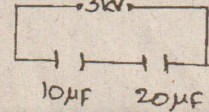 3kV
10μF 20μF